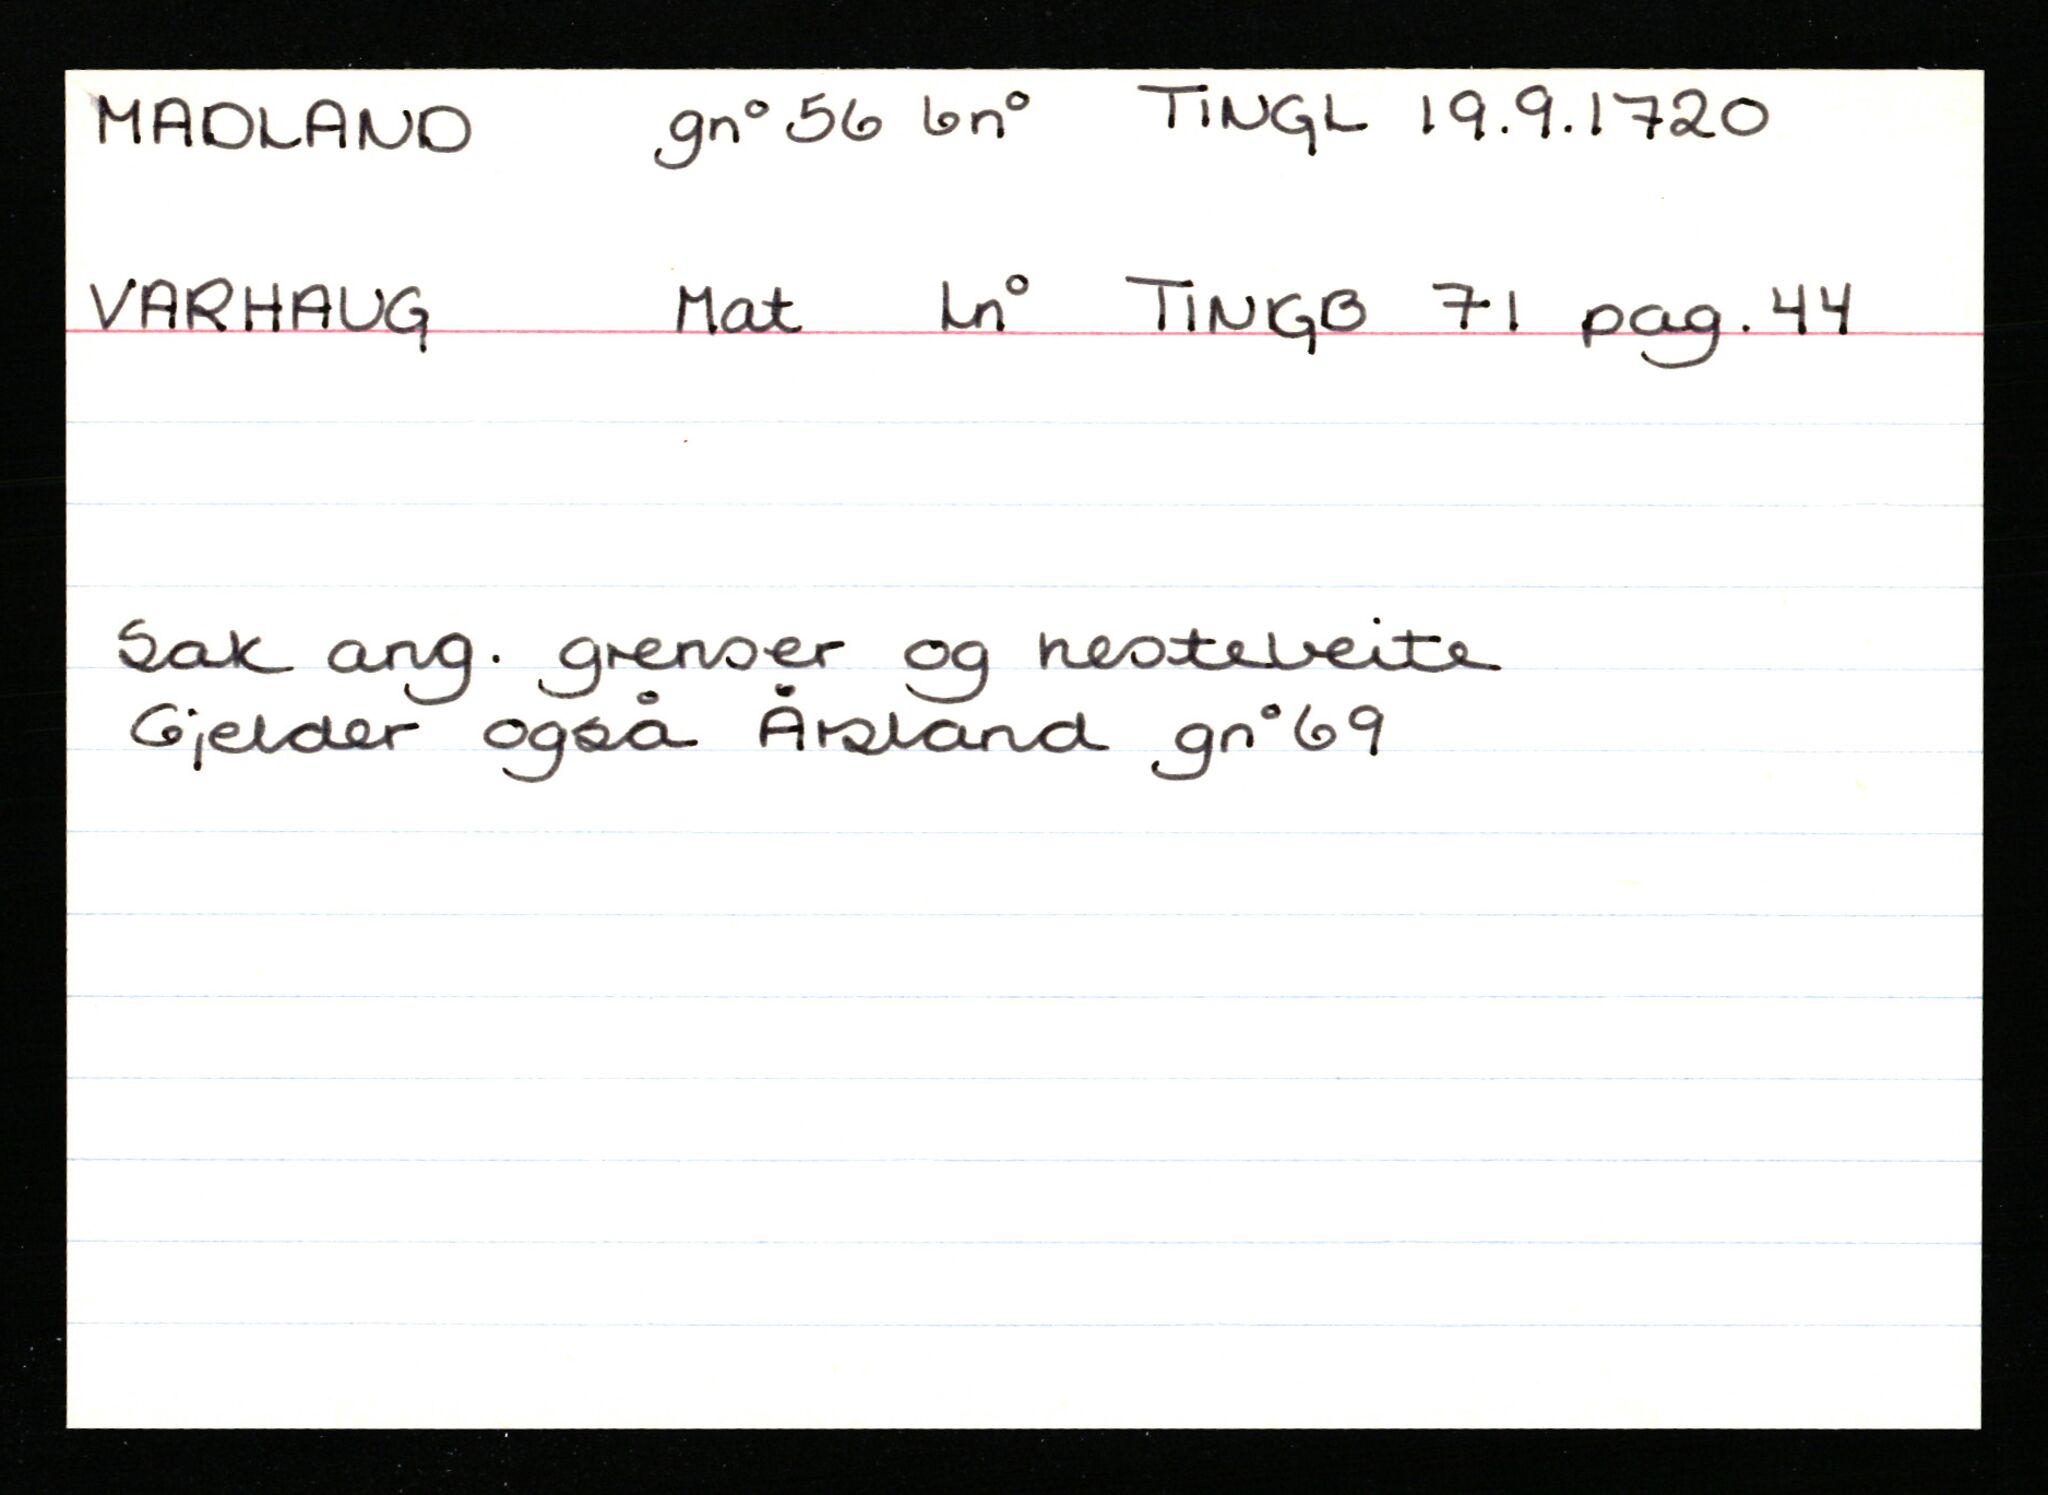 MADLAND gn° 56 bn° TINGL 19.9.1720
VARHAUG Mat Ln° TINGB 71 pag. 44
Sak ang. grenser og hestebeite
Gjelder også Årsland gn° 69